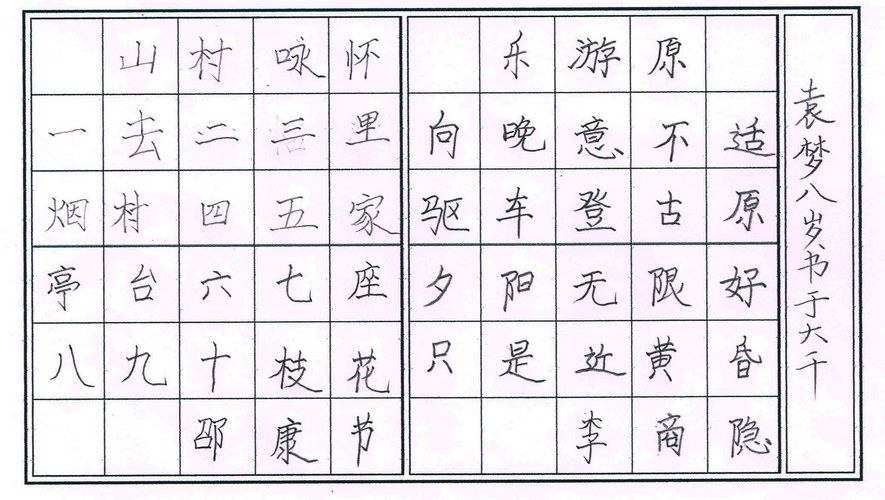 山村咏怀
一去二三里
烟村四五家
亭台六七座
八九十枝花
邵康节
乐游原
向晚意不适
驱车登古原
夕阳无限好
只是近黄昏
李商隐
袁梦八岁书于大千